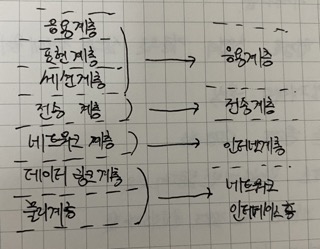 응용계층
표현계층
세션계층
응용계층
전송 계층
전송계층
네트워크 계층
인터넷계층
데이터 링크계층
물리계층
네트워크
인터페이스층